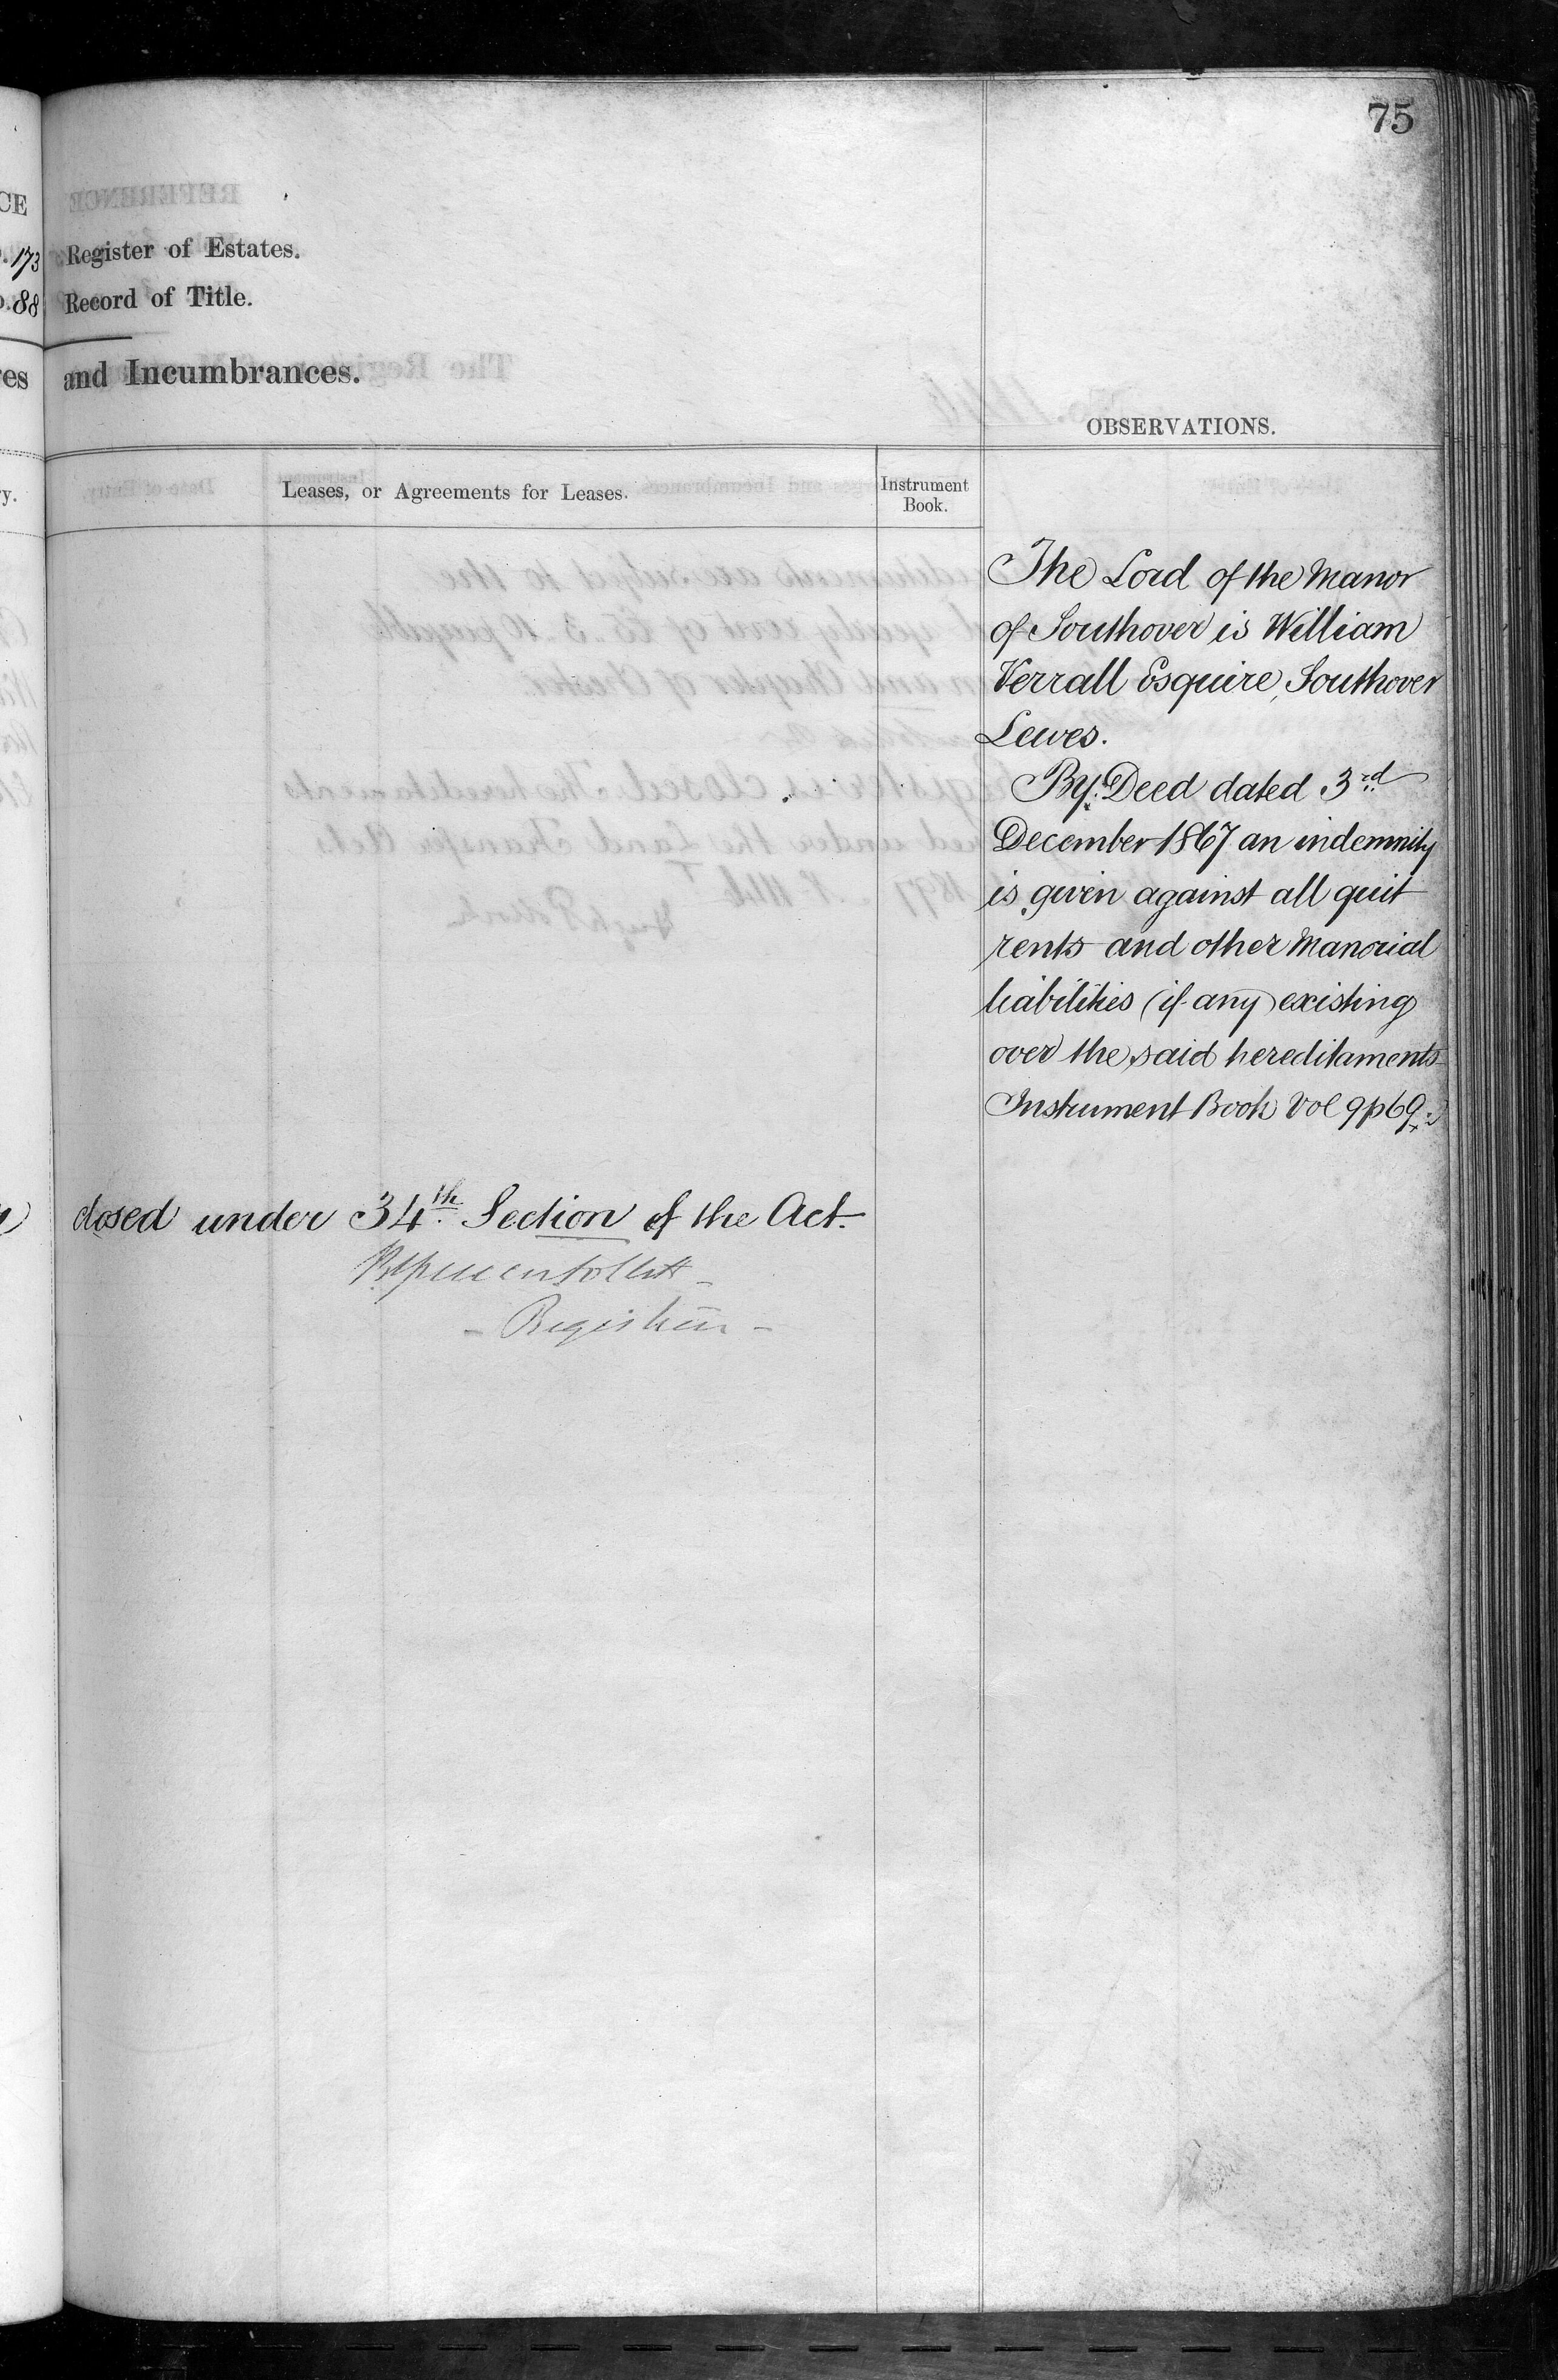 75
CE
173 Register of Estates.
88 Record of Title.
and Incumbrances.
OBSERVATIONS.
Leases, or Agreements for Leases.
Instrument
Book.
The Lord of the Manor
of Southover is William
Verrall Esquire, Southover
Lewes.
By Deed dated 3rd
December 1867 an indemnity
is given against all quit
rents and other Manorial
liabilities (if any) existing
over the said hereditaments
Instrument Book Vol 9 p 69.
closed under 34th Section of the Act.